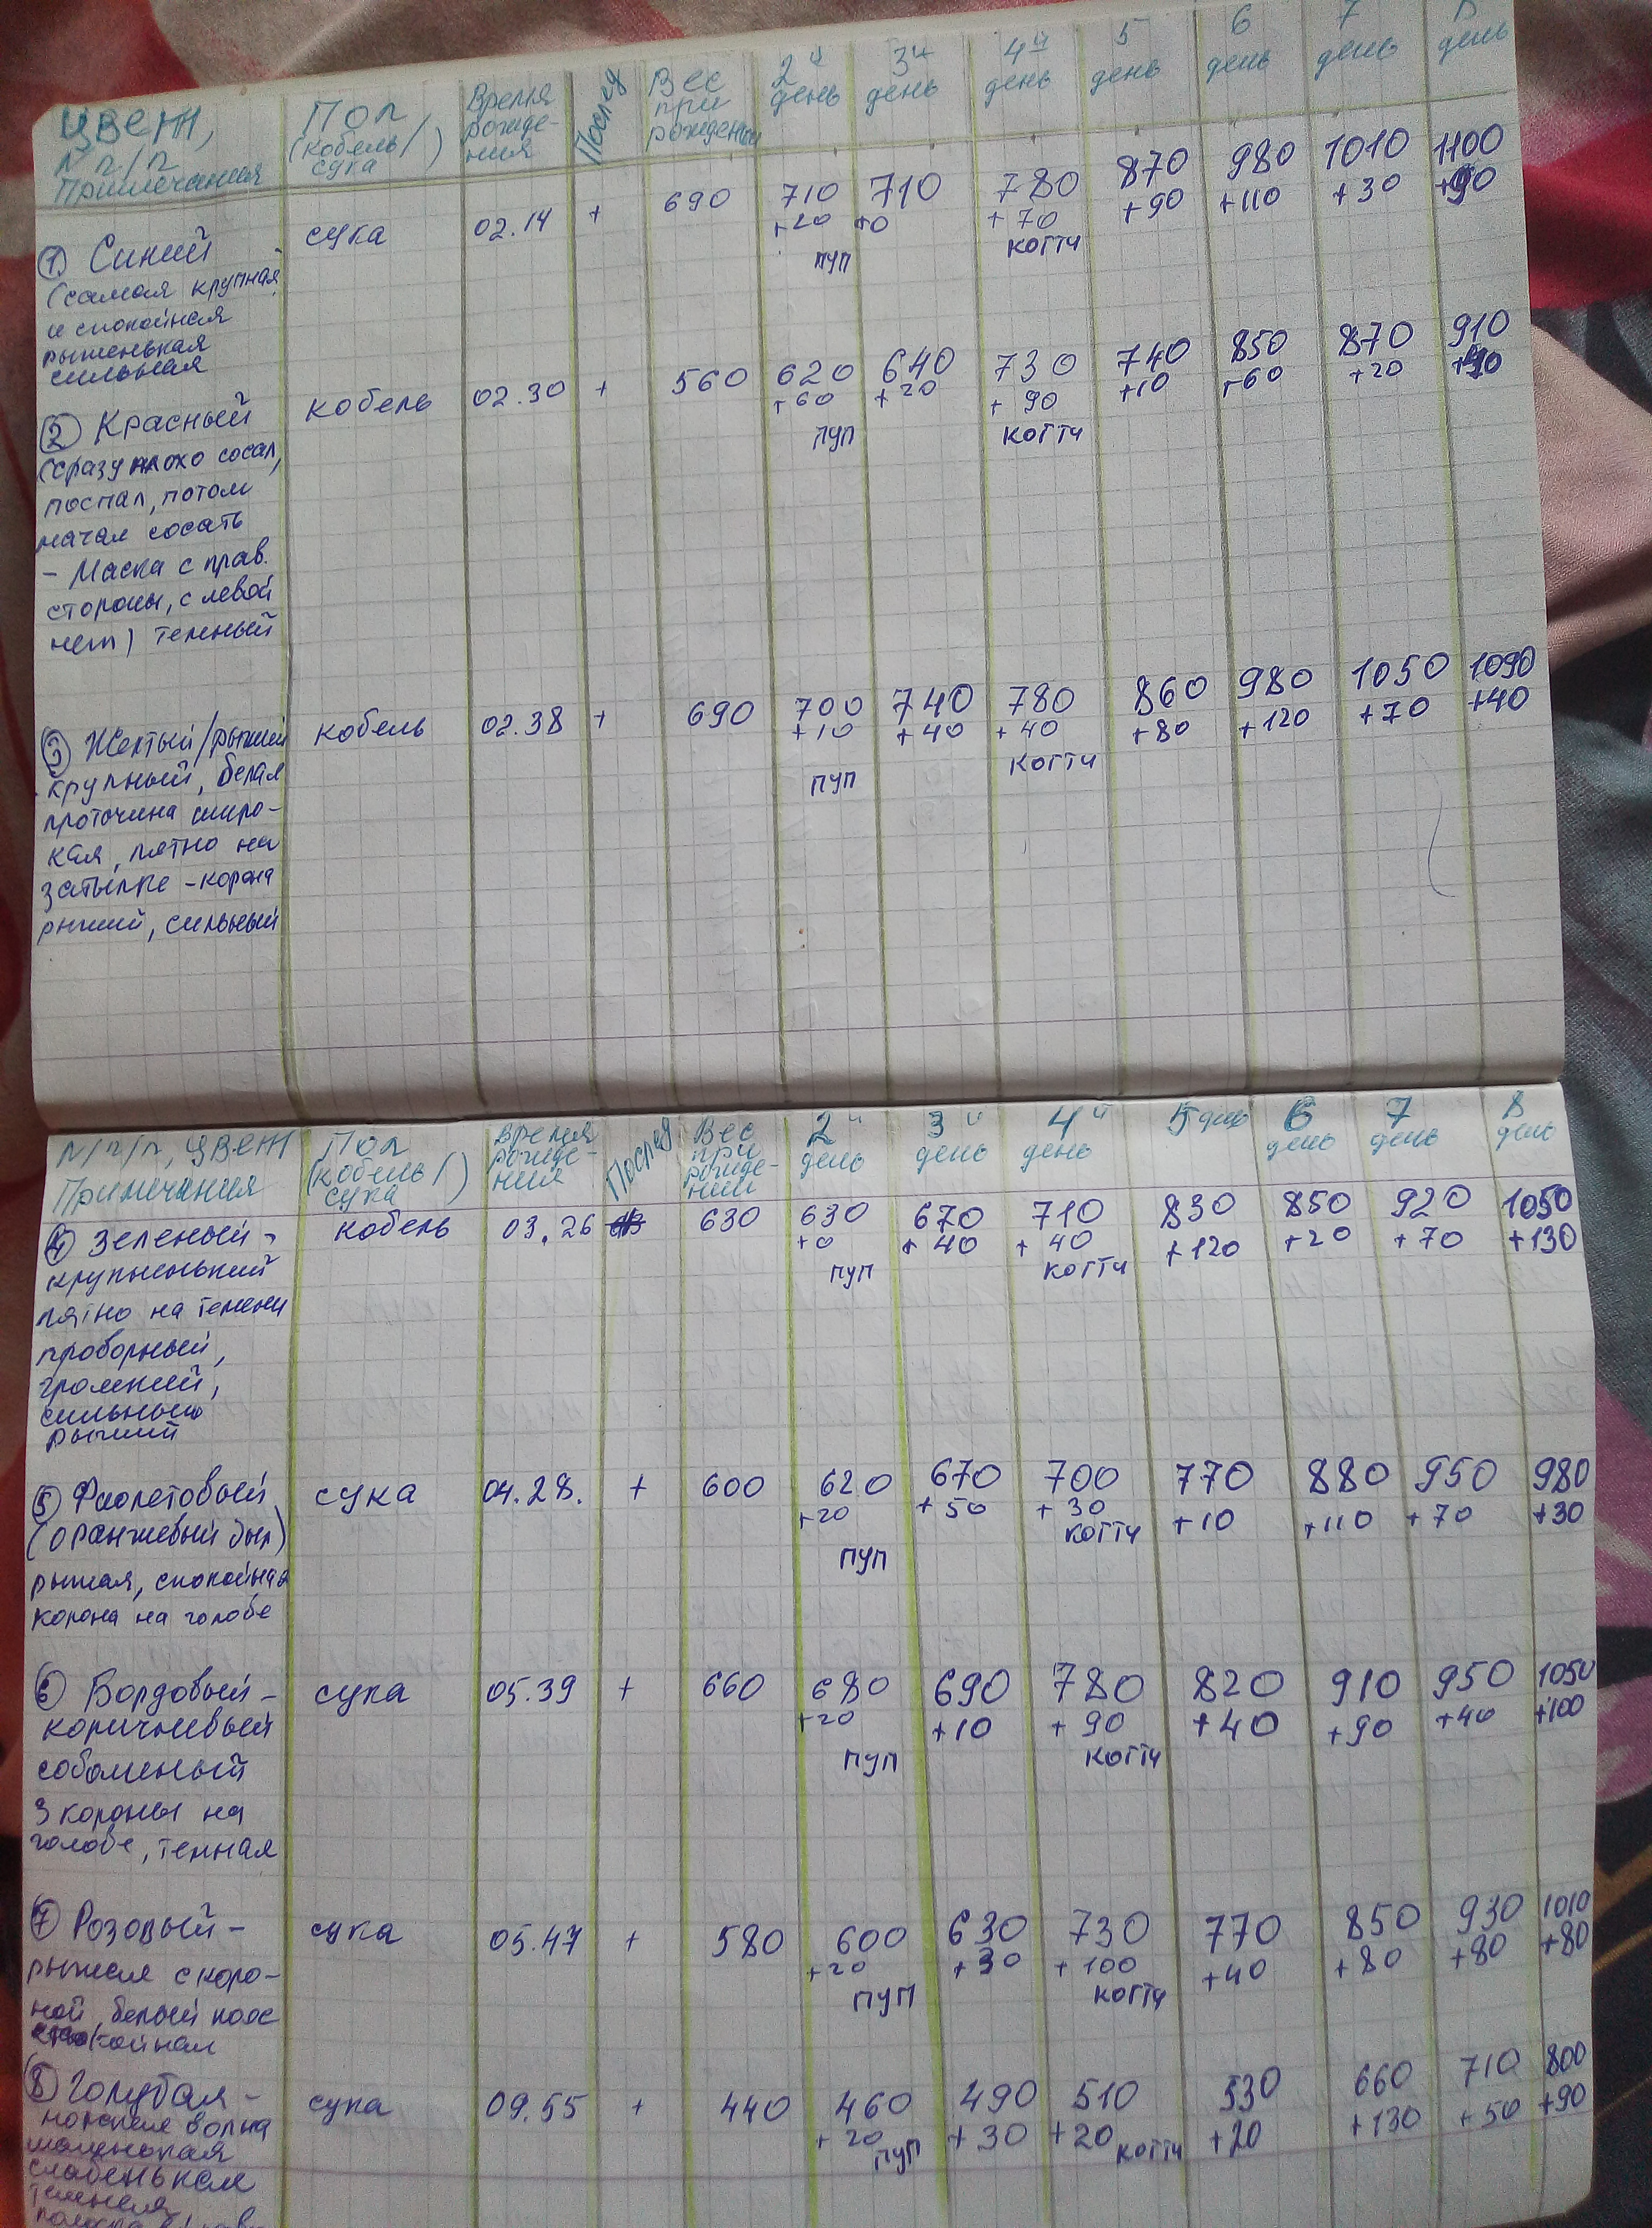 Цвет, Пол Время Послед Вес 2й 3й 4й 5 6 7 8
N п/п (кобель/ рожде- при день день день день день день день
Примечания сука) ния рождении
① Синий сука 02.14 + 690 710 710 780 870 980 1010 1100
+20 +0 +70 +90 +110 +30 +90
пуп когти
(самая крупная
и спокойная
рыженькая
сильная
② Красный кобель 02.30 + 560 620 640 730 740 850 870 910
+60 +20 +90 +10 +60 +20
пуп когти
(сразу плохо сосал,
поспал, потом
начал сосать
- Маска с прав.
стороны, с левой
нет) темный
③ Желтый/рыжий кобель 02.38 + 690 700 740 780 860 980 1050 1090
+10 +40 +40 +80 +120 +70 +40
пуп когти
крупный, белая
проточина широ-
кая, пятно на
затылке - корона
рыжий, сильный
N/п/п, цвет Пол Время Послед Вес 2й 3й 4й 5 день 6 7 8
Примечания (кобель/ рожде- при день день день день день день
сука) ния рожде-
нии
④ Зеленый - кобель 03.26 630 630 670 710 830 850 920 1050
+0 +40 +40 +120 +20 +70 +130
пуп когти
крупненький
пятно на темени
проворный,
громкий,
сильный
рыжий
⑤ Фиолетовый сука 04.28. + 600 620 670 700 770 880 950 980
+20 +50 +30 +10 +110 +70 +30
пуп когти
(оранжевый был)
рыжая, спокойная
корона на голове
⑥ Бордовый - сука 05.39 + 660 680 690 780 820 910 950 1050
+20 +10 +90 +40 +90 +40 +100
пуп когти
коричневый
соболиный
3 короны на
голове, темная
⑦ Розовый - сука 05.47 + 580 600 630 730 770 850 930 1010
+20 +30 +100 +40 +80 +80 +80
пуп когти
рыжая с коро-
ной, белый пояс
спокойная
⑧ Голубая - сука 09.55 + 440 460 490 510 530 660 710 800
+20 +30 +20 +20 +130 +50 +90
пуп когти
морская волна
маленькая
слабенькая
темная